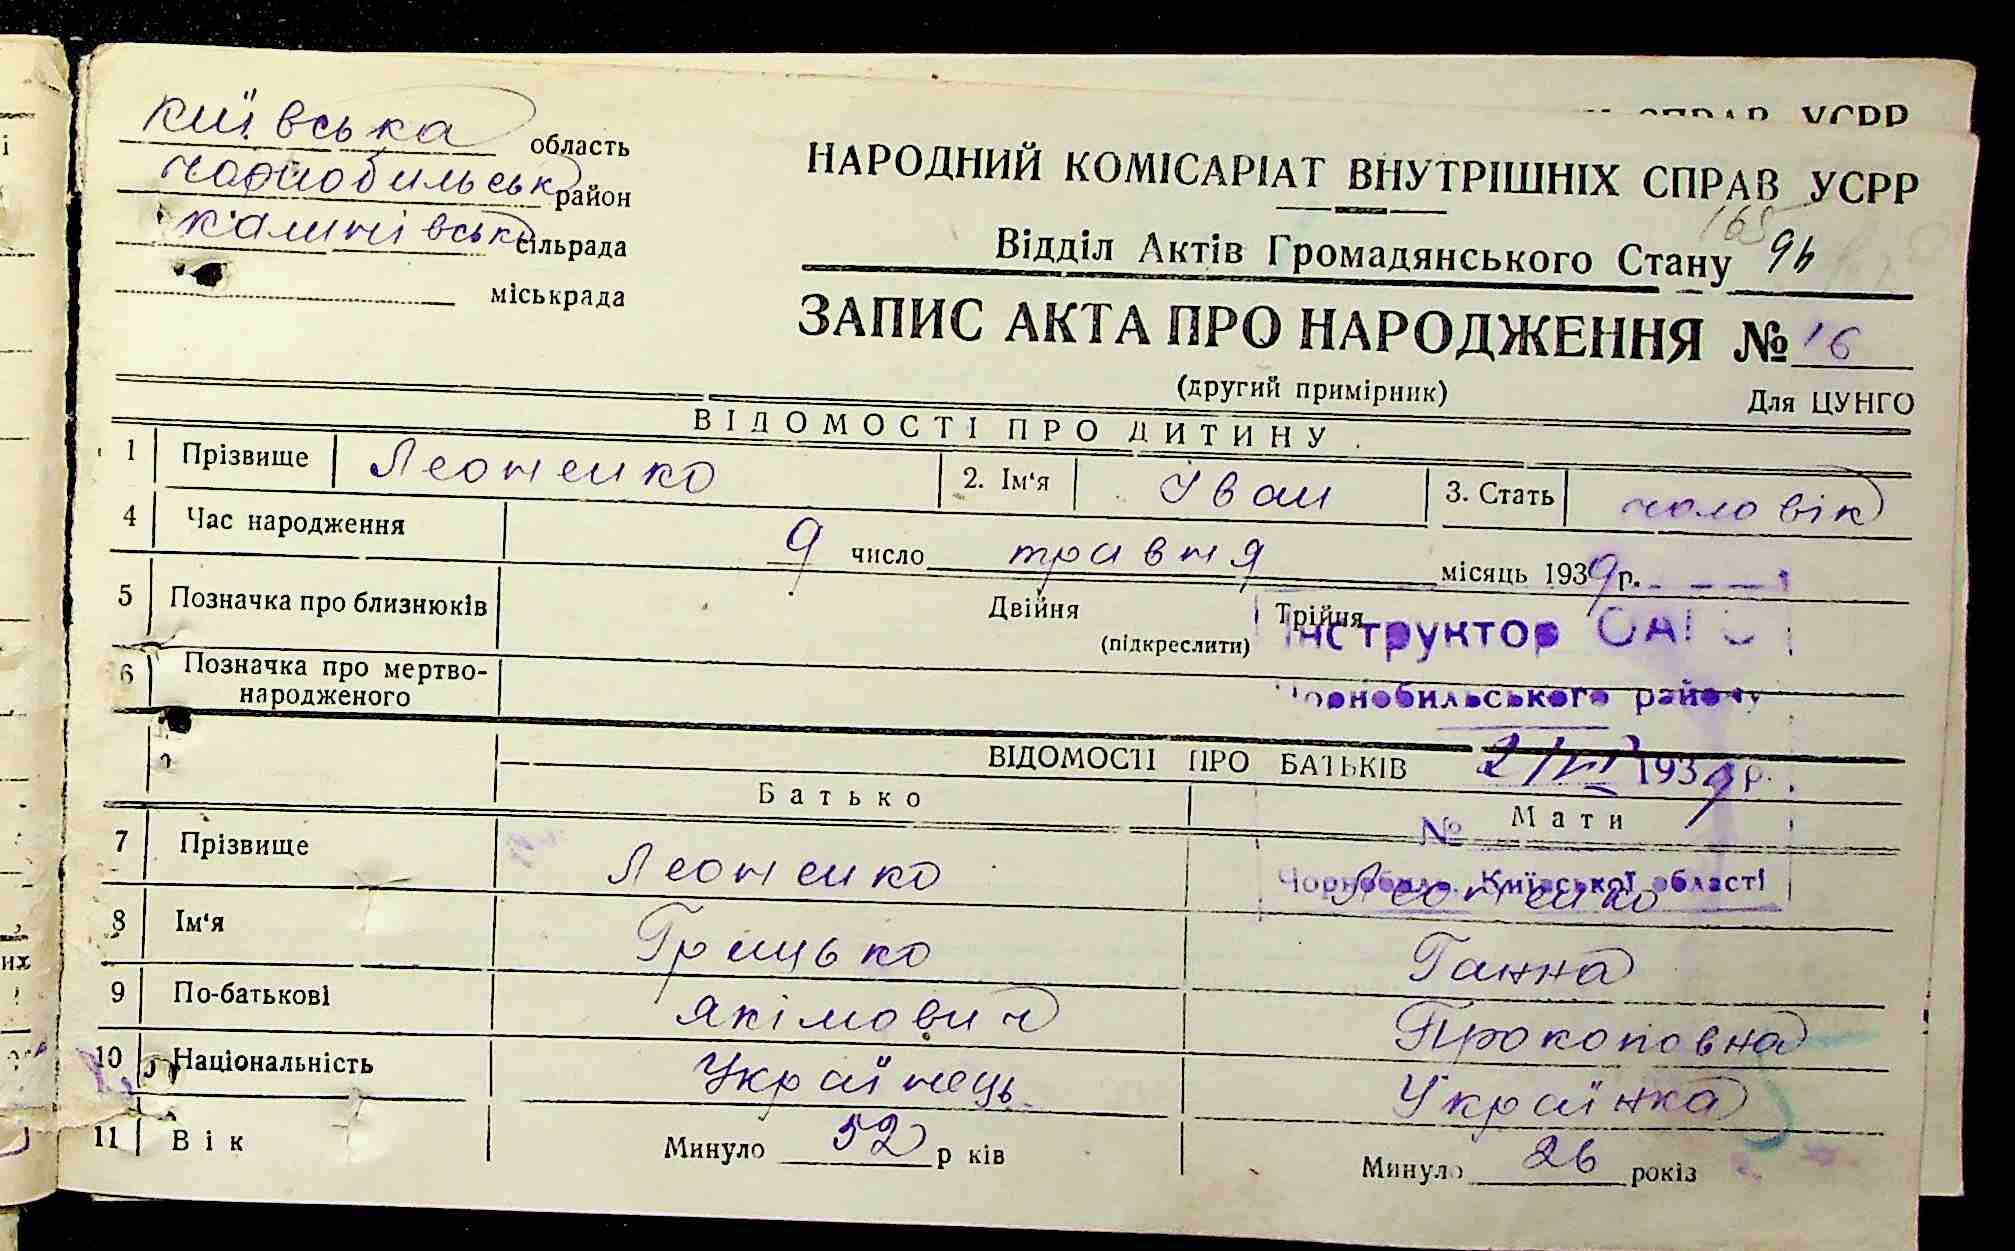 Київська область
Чорнобильськ район
Калинівськ сільрада
міськрада
СПРАВ УСРР
НАРОДНИЙ КОМІСАРІАТ ВНУТРІШНІХ СПРАВ УСРР
165
Відділ Актів Громадянського Стану 96
ЗАПИС АКТА ПРО НАРОДЖЕННЯ № 16
(другий примірник) Для ЦУНГО
ВІДОМОСТІ ПРО ДИТИНУ
1 Прізвище Леоненко 2. Ім'я Іван 3. Стать чоловік
4 Час народження 9 число травня місяць 1939 р.
5 Позначка про близнюків Двійня Трійня
(підкреслити)
Інструктор ОАГС
6 Позначка про мертво-
народженого
Чорнобильського району
ВІДОМОСТІ ПРО БАТЬКІВ
1939 р.
Батько Мати
№
7 Прізвище Леоненко Леоненко
Чорнобиль Київської області
8 Ім'я Грицько Ганна
9 По-батькові Якімович Прокоповна
10 Національність Українець Українка
11 Вік Минуло 52 р ків Минуло 26 років